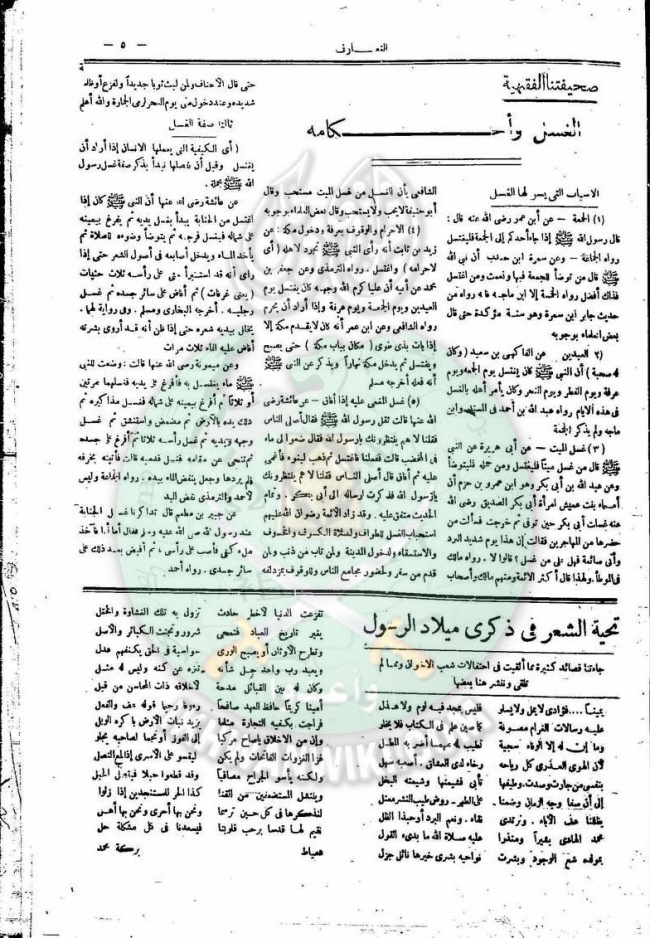 — ٥ —
التعارف
صحيفتنا الفقهية
الغسل وأحكامه
الاسباب التي يسن لها الغسل
(١) الجمعة — عن ابن عمر رضى الله عنه قال :
قال رسول الله ﷺ إذا جاء أحدكم إلى الجمعة فليغتسل
رواه الجماعة — وعن سمرة ابن جندب أن نبي الله
ﷺ قال من توضأ للجمعة فبها ونعمت ومن اغتسل
فذلك أفضل رواه الخمسة إلا ابن ماجه فانه رواه من
حديث جابر ابن سمرة وهو سنة مؤكدة حتى قال
بعض العلماء بوجوبه
(٢) العيدين — عن الفاكهى بن سعيد (وكان
له صحبة) أن النبي ﷺ كان يغتسل يوم الجمعة ويوم
عرفة ويوم الفطر ويوم النحر وكان يأمر أهله بالغسل
في هذه الأيام رواه عبد الله بن أحمد في المسند وابن
ماجه ولم يذكر الجمعة
(٣) غسل الميت — عن أبي هريرة عن النبي
ﷺ قال من غسل ميتاً فليغتسل ومن حمله فليتوضأ
وعن عبد الله بن أبي بكر وهو ابن عمرو بن حزم أن
أسماء بنت عميس امرأة أبي بكر الصديق رضى الله
عنه غسلت أبي بكر حين توفى ثم خرجت فسألت من
حضرها من المهاجرين فقالت إن هذا يوم شديد البرد
وأنى صائمة فهل على من غسل ؟ قالوا لا . رواه مالك
في الموطأ. ولهذا قال أكثر الأئمة ومنهم مالك وأصحاب
الشافعي بأن الغسل من غسل الميت مستحب وقال
أبو حنيفة لا يجب ولا يستحب وقال بعض العلماء بوجوبه
(٤) الاحرام والوقوف بعرفة ودخول مكة : عن
زيد بن ثابت أنه رأى النبي ﷺ تجرد لاهله (أى
لاحرامه) واغتسل . رواه الترمذى وعن جعفر بن
محمد عن أبيه أن عليا كرم الله وجهه كان يغتسل يوم
العيدين ويوم الجمعة ويوم عرفة وإذا أراد أن يحرم
رواه الشافعى وعن ابن عمر أنه كان لا يقدم مكة إلا
إذا بات بذى طوى (مكان بباب مكة) حتى يصبح
ويغتسل ثم يدخل مكة نهاراً ويذكر عن النبي ﷺ
أنه فعله أخرجه مسلم
(٥) غسل المغمى عليه إذا أفاق — عن عائشة رضى
الله عنها قالت ثقل رسول الله ﷺ فقال أصلى الناس
فقلنا لا هم ينتظرونك يا رسول الله فقال ضعوا لى ماء
في المخضب قالت ففعلنا فاغتسل ثم ذهب لينوء فأغمى
عليه ثم أفاق قال أصلى الناس فقلنا لا هم ينتظرونك
يا رسول الله فذكرت ارساله الى أبي بكر . وتمام
الحديث متفق عليه . وقد زاد الأئمة رضوان الله عليهم
استحباب الغسل للطواف ولصلاة الكسوف والخسوف
والاستسقاء ولدخول المدينة ولمن تاب من ذنب ولمن
قدم من سفر ولحضور مجامع الناس وللوقوف بمزدلفة
حتى قال الأحناف ولمن لبث ثوبا جديداً ولفزع أو ظلمة
شديدة وعند دخول منى يوم النحر لرمى الجمارة والله أعلم
ثالثا صفة الغسل
(أى الكيفية التى يعملها الانسان إذا أراد أن
يغتسل وقبل أن نفصلها نبدأ بذكر صفة غسل رسول
الله ﷺ بجملة.
عن عائشة رضى الله عنها أن النبي ﷺ كان إذا
اغتسل من الجنابة يبدأ بغسل يديه ثم يفرغ بيمينه
على شماله فيغسل فرجه ثم يتوضأ وضوءه للصلاة ثم
يأخذ الماء ويدخل أصابعه في أصول الشعر حتى إذا
رأى أنه قد استبرأ حفن على رأسه ثلاث حثيات
(يعنى غرفات) ثم أفاض على سائر جسده ثم غسل
رجليه . أخرجه البخارى ومسلم . وفي رواية لهما .
يخلل بيديه شعره حتى إذا ظن أنه قد أروى بشرته
أفاض عليه الماء ثلاث مرات
وعن ميمونة رضى الله عنها قالت : وضعت للنبي
ﷺ ماء يغتسل به فأفرغ على يديه فغسلهما مرتين
أو ثلاثاً ثم أفرغ بيمينه على شماله فغسل مذاكيره ثم
دلك يده بالأرض ثم مضمض واستنشق ثم غسل
وجهه ويديه ثم غسل رأسه ثلاثاً ثم أفرغ على جسده
ثم تنحى عن مقامه فغسل قدميه قالت فأتيته بخرقة
فلم يردها وجعل ينفض الماء بيده . رواه الجماعة وليس
لأحمد والترمذى نفض اليد
عن جبير بن مطعم قال تذاكرنا غسل الجنابة
عند رسول الله صلى الله عليه وسلم فقال أما أنا فآخذ
ملء كفى فأصب على رأسى ، ثم أفيض بعد ذلك على
سائر جسدى . رواه أحمد
تحية الشعر فى ذكرى ميلاد الرسول
جاءتنا قصائد كثيرة مما ألقيت فى احتفالات شعب الاخوان ومما لم
تلقى وننشر هنا بعضها
يميناً ... فؤادى لا يمل ولا يسار
عليه رسالات الغرام
الوفاء سجية
لأن الهوى العذرى كل رياحه
بنفسى من جارت وصدت وطيفها
يظللنا هذه الآباء . وترتدى
محمد الهادى بشيراً ومنذرا
بمولده شع الوجود وبشرت
فليس بمجد فيه لوم ولا عذل
على الطهر . روض طيب النشر معتل
نقاء . ونعم البرد أو حبذا الظل
عليه صلاة الله ما بدىء القول
نواحيه بشرى خيرها نائل جزل
تفزعت الدنيا لأخطر حادث
يغير تاريخ العباد فتمحى
وتطرح الأوثان أو يصبح الورى
ويعبد رب واحد جل شأنه
وكان له بين القبائل مدحة
أمينا كريماً حافظ العهد صافحاً
فراجت بكفيه التجارة مثلما
وإن من الأخلاق
غزا الغزوات الفاتحات ولم يكن
ولكنه يأسو الجراح مصافياً
وينتشل المستضعفين من الفنا
لنذكرها فى كل حين ترسما
نقيم لها قدسا برحب قلوبنا
دمياط
تزول به تلك الغشاوة والختل
شرور وتجتث الكبائر والأصل
سواسية فى الحق يكنفهم عدل
تنزه عن كنه وليس له مثل
لأخلاقه ذات المحاسن من قبل
إلى الفوز أو نجما لصاحبه يجلو
ليقسو على الأسرى إذا لمع النصل
كذا الحر للمستنجدين إذا زلوا
ونحن بها أحرى ونحن بها أهل
فيسعدنا فى كل مشكلة حل
بركة محمد